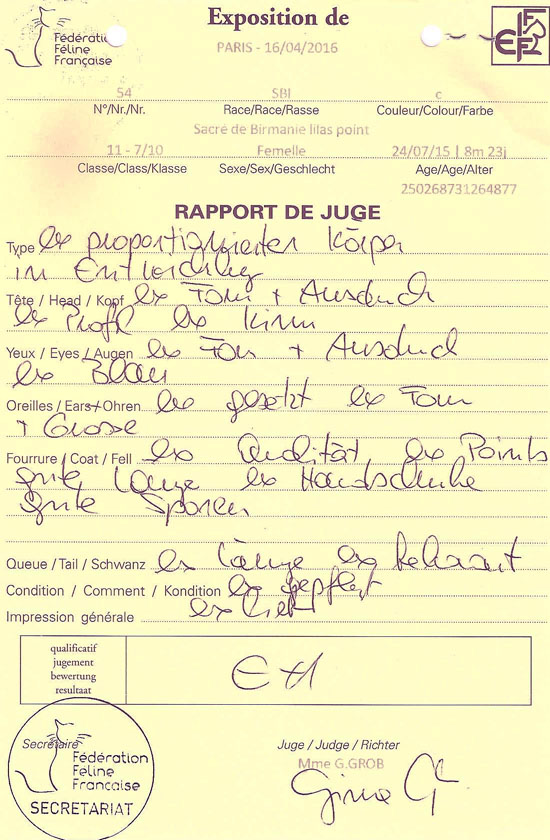 Fédération
Féline
Française
Exposition de
PARIS - 16/04/2016
FIFe
54 SBI c
N°/Nr./Nr. Race/Race/Rasse Couleur/Colour/Farbe
Sacré de Birmanie lilas point
11 - 7/10 Femelle 24/07/15 | 8m 23j
Classe/Class/Klasse Sexe/Sex/Geschlecht Age/Age/Alter
250268731264877
RAPPORT DE JUGE
Type ex proportionierter Körper
in Entwicklung
Tête / Head / Kopf ex Form + Ausdruck
ex Profil ex Kinn
Yeux / Eyes / Augen ex Form + Ausdruck
ex Blau
Oreilles / Ears / Ohren ex gesetzt ex Form
+ Grosse
Fourrure / Coat / Fell ex Qualität, ex Points
gute Länge ex Handschuhe
gute Sporen
Queue / Tail / Schwanz ex Länge ex behaart
Condition / Comment / Kondition ex gepflegt
Impression générale ex
qualificatif
jugement
bewertung
resultaat
EX1
Secrétaire
Fédération
Féline
Française
SECRETARIAT
Juge / Judge / Richter
Mme G.GROB
Gina